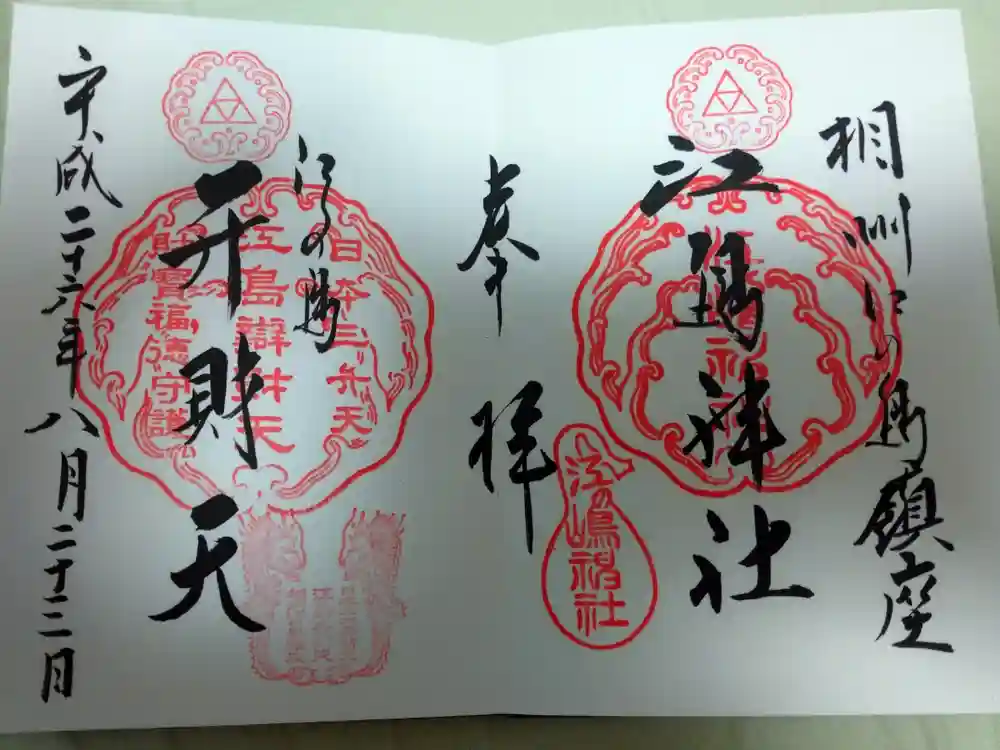 相州江の島鎮座
江島神社
江の嶋神社
奉拝
江の島
弁財天
日本三弁天
江島辯財天
財寶福徳守護
平成二十六年八月二十二日